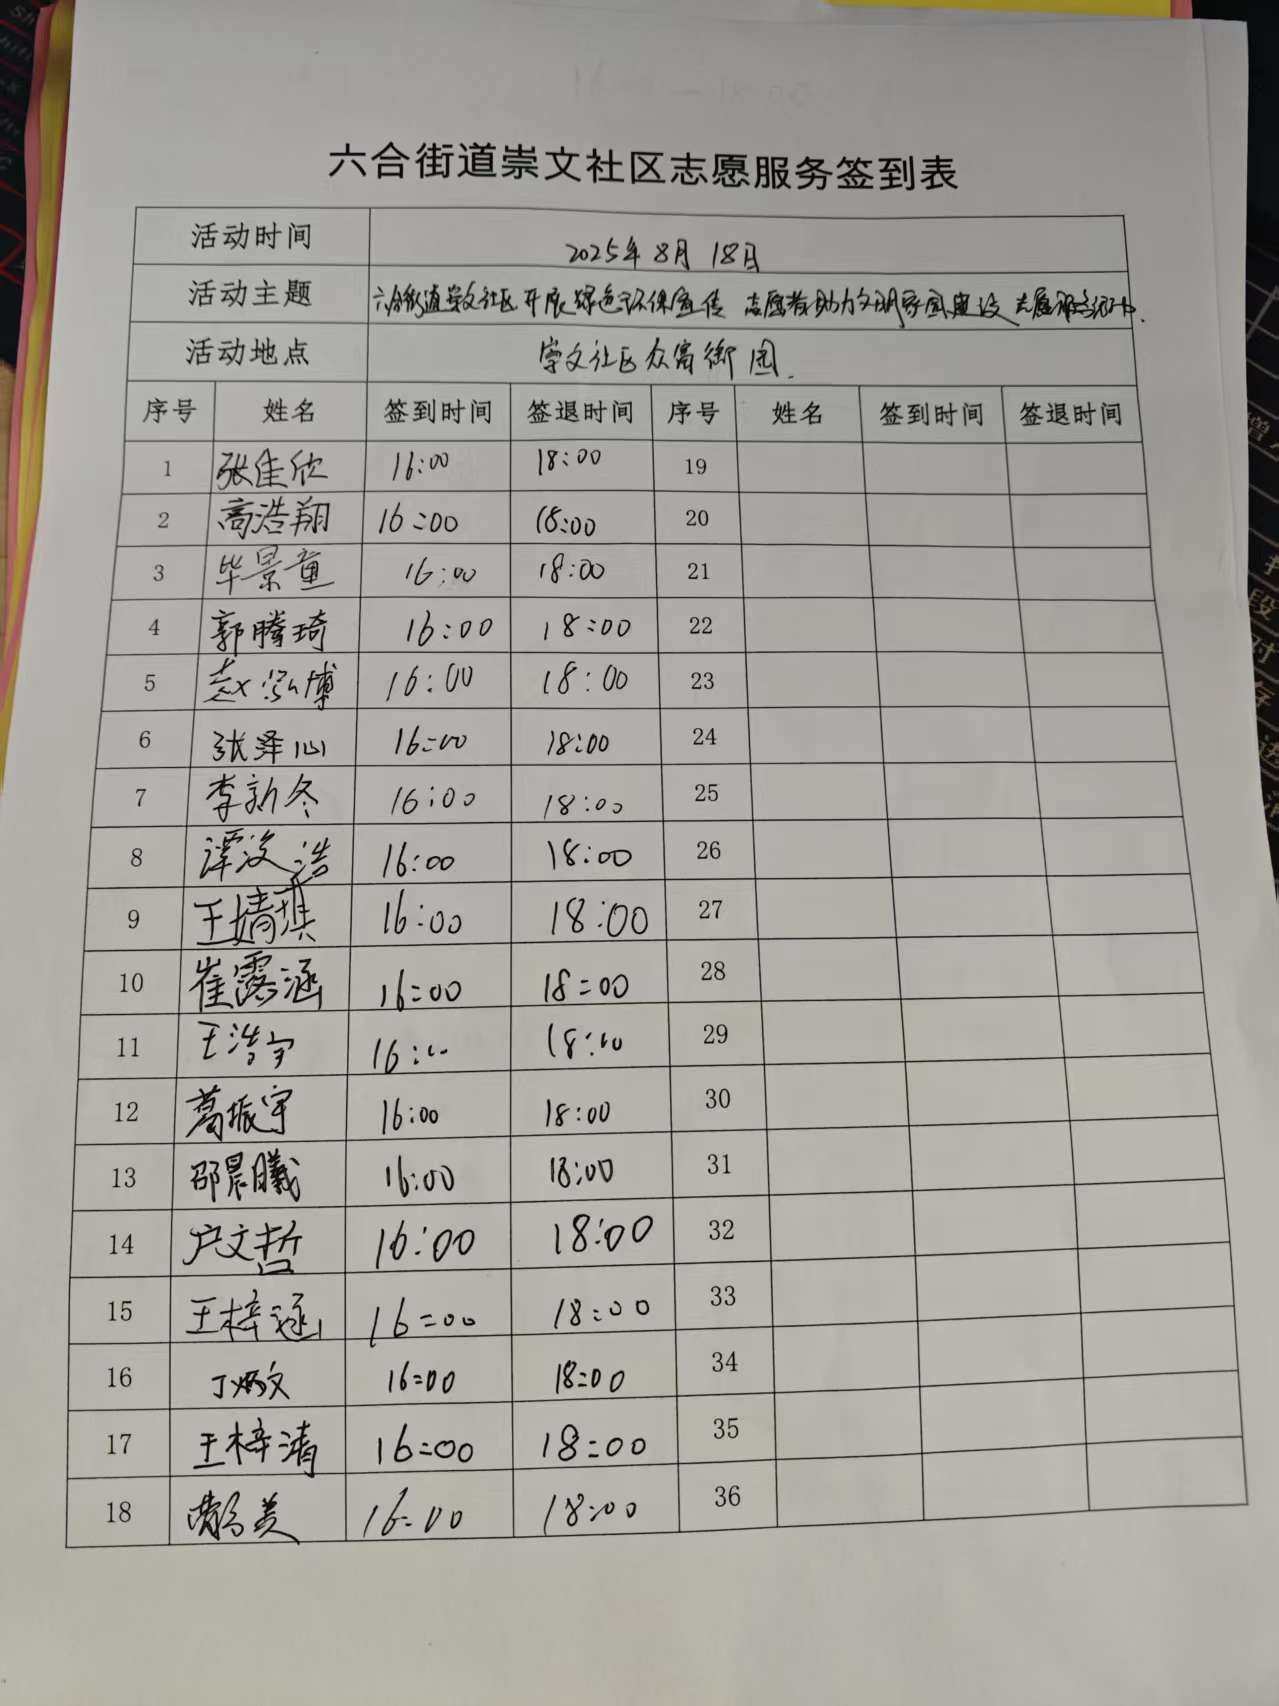 六合街道崇文社区志愿服务签到表
活动时间 2025年8月18日
活动主题 六合街道崇文社区开展绿色环保宣传 志愿者助力文明家园建设 志愿服务活动.
活动地点 崇文社区众富街园.
序号 姓名 签到时间 签退时间 序号 姓名 签到时间 签退时间
1 张佳欣 16:00 18:00 19
2 高浩翔 16:00 18:00 20
3 毕景童 16:00 18:00 21
4 郭腾琦 16:00 18:00 22
5 赵泓博 16:00 18:00 23
6 张泽心 16:00 18:00 24
7 李新冬 16:00 18:00 25
8 谭浚浩 16:00 18:00 26
9 王婧琪 16:00 18:00 27
10 崔露涵 16:00 18:00 28
11 王浩宇 16:00 18:00 29
12 葛振宇 16:00 18:00 30
13 邵晨曦 16:00 18:00 31
14 户文哲 16:00 18:00 32
15 王梓涵 16:00 18:00 33
16 丁炳文 16:00 18:00 34
17 王梓清 16:00 18:00 35
18 美 16:00 18:00 36